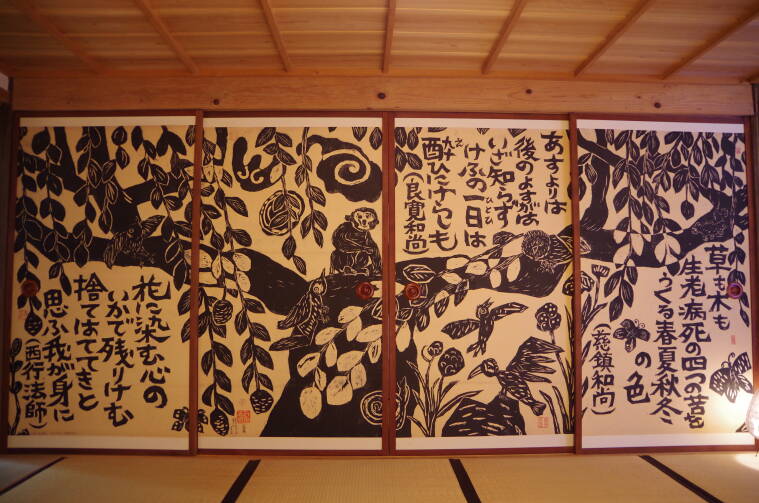 草も木も
生老病死の四つの苦を
うくる春夏秋冬
の色
(慈鎮和尚)
あすよりは
後のよすがは
いざ知らず
けふの一日は
酔ひにけらしも
(良寛和尚)
花に染む心の
いかで残りけむ
捨てはててきと
思ふ我が身に
(西行法師)